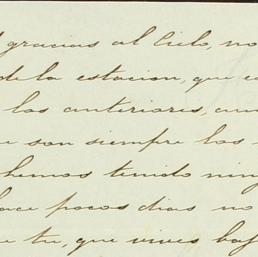 gracias al Cielo, no
de la estacion, que
los anteriores,
son siempre los
hemos tenido
hace pocos dias no
tu, que vives baj